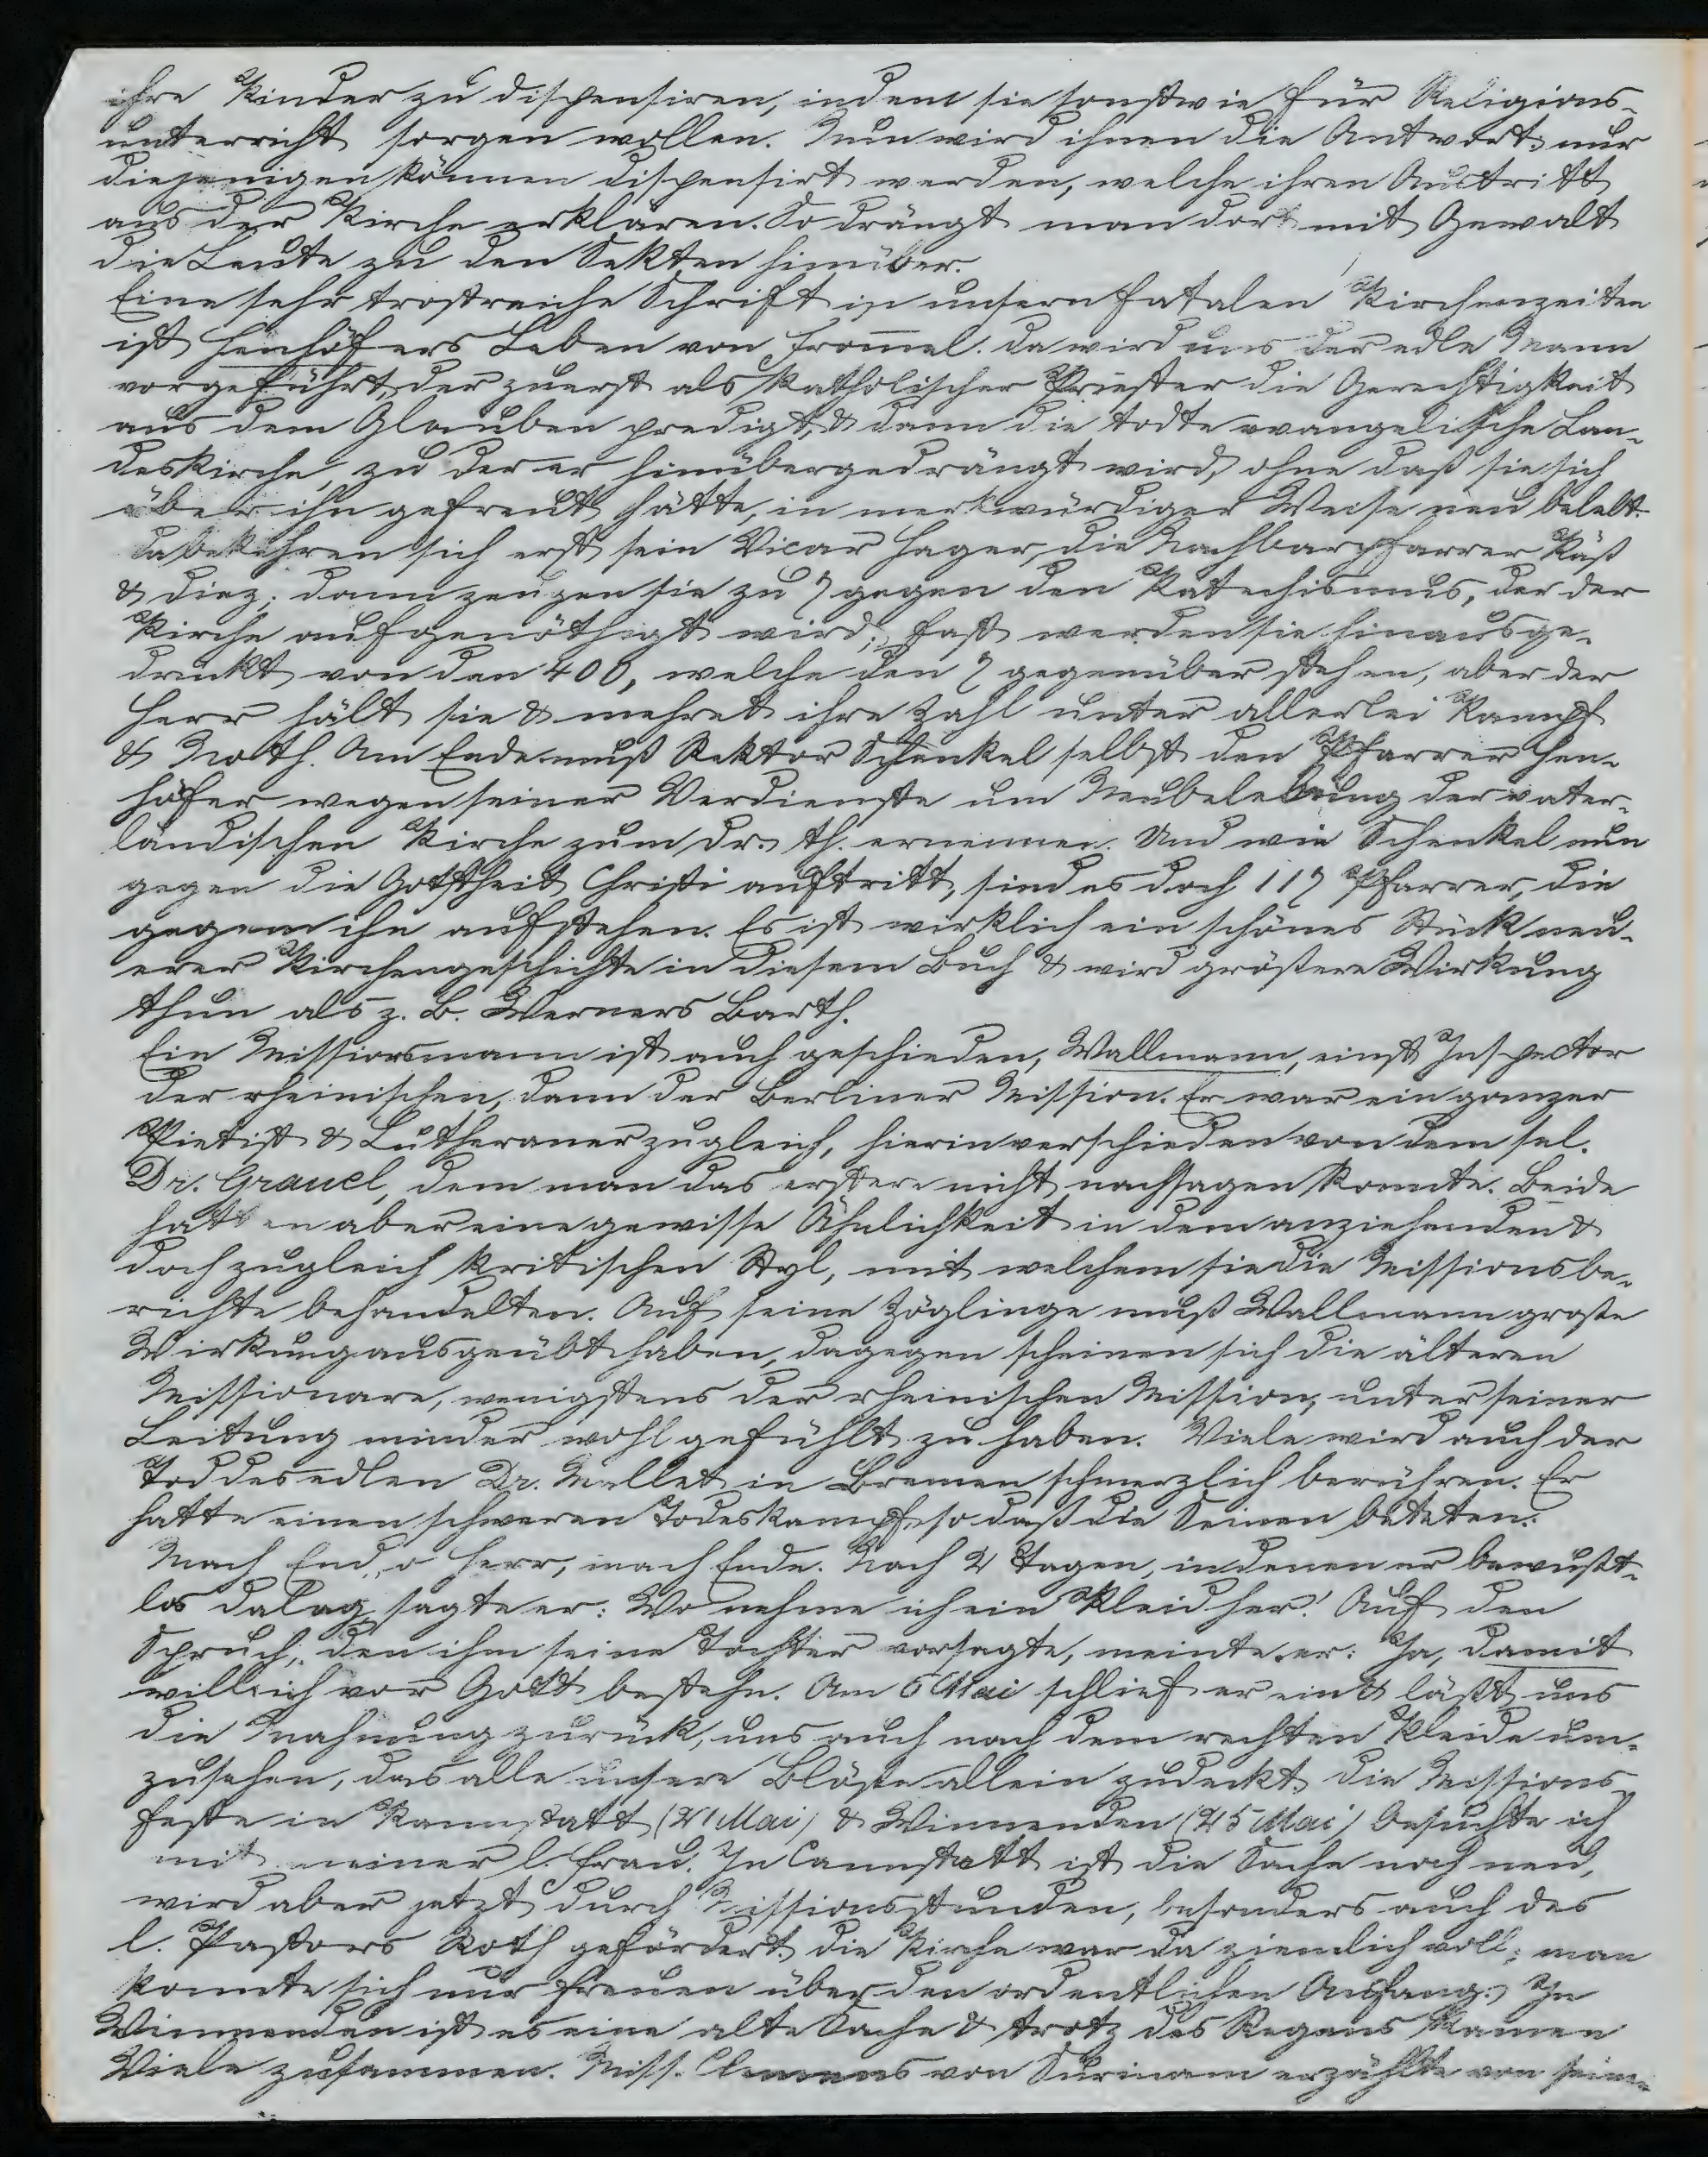 ihre Kinder zu dispensiren, indem sie sonstwie für Religions-
unterricht sorgen wollen. Nun wird ihnen die Antwort: nur
diejenigen können dispensirt werden, welche ihren Austritt
aus der Kirche erklären. So drängt man dort mit Gewalt
die Leute zu den Sekten hinüber.
Eine sehr trostreiche Schrift in unsern fatalen Kirchenzeiten
ist Henhöfers Leben von Frommel. Da wird uns der edle Mann
vorgeführt, der zuerst als katholischer Priester die Gerechtigkeit
aus dem Glauben predigt, & dann die todte evangelische Lan-
deskirche, zu der er hinübergedrängt wird, ohne daß sie sich
über ihn gefreut hätte, in merkwürdiger Weise neu belebt.
Da bekehren sich erst sein Vicar Hager, die Nachbarpfarrer Käß
& Diez; dann zeugen sie zu 7 gegen den Katechismus, der der
Kirche aufgenöthigt wird; fast werden sie hinausge-
drückt von den 400, welche den 7 gegenüber stehen, aber der
Herr hält sie & mehret ihre Zahl unter allerlei Kampf
& Noth. Am Ende muß Rektor Schenkel selbst den Pfarrer Hen-
höfer wegen seiner Verdienste um Neubelebung der vater-
ländischen Kirche zum Dr. th. ernennen. Und wie Schenkel nun
gegen die Gottheit Christi auftritt, sind es doch 117 Pfarrer, die
gegen ihn aufstehen. Es ist wirklich ein schönes Stück neu-
erer Kirchengeschichte in diesem Buch & wird größere Wirkung
thun als z. B. Werners Barth.
Ein Missionsmann ist auch geschieden, Wallmann, einst Inspector
der rheinischen, dann der Berliner Mission. Er war ein ganzer
Pietist & Lutheraner zugleich, hierin verschieden von dem sel.
Dr. Graul, dem man das erstere nicht nachsagen konnte. Beide
hatten aber eine gewisse Ähnlichkeit in dem anziehenden &
doch zugleich kritischen Styl, mit welchem sie die Missionsbe-
richte behandelten. Auf seine Zöglinge muß Wallmann große
Wirkung ausgeübt haben, dagegen scheinen sich die älteren
Missionare, wenigstens der rheinischen Mission, unter seiner
Leitung minder wohl gefühlt zu haben. Viele wird auch der
Tod des edlen Dr. Mallet in Bremen schmerzlich berühren. Er
hatte einen schweren Todeskampf, so daß die Seinen beteten:
Mach End, o Herr, mach Ende. Nach 2 Tagen, in denen er bewußt-
los dalag, sagte er: Wo nehme ich ein Kleid her! Auf den
Spruch, den ihm seine Tochter vorsagte, meinte er: Ja, damit
will ich vor Gott bestehn. Am 6 Mai schlief er ein & läßt uns
die Mahnung zurück, uns auch nach dem rechten Kleide um-
zusehen, das alle unsere Blöße allein zudeckt. Die Missions-
feste in Kannstatt (21 Mai) & Winnenden (25 Mai) besuchte ich
mit meiner l. Frau. In Cannstatt ist die Sache noch neu,
wird aber jetzt durch Missionsstunden, besonders auch des
l. Pastors Roth gefördert. Die Kirche war da ziemlich voll; man
konnte sich nur freuen über den ordentlichen Anfang. In
Winnenden ist es eine alte Sache & trotz des Regens kamen
Viele zusammen. Miss. Clemens von Surinam erzählte von seine-